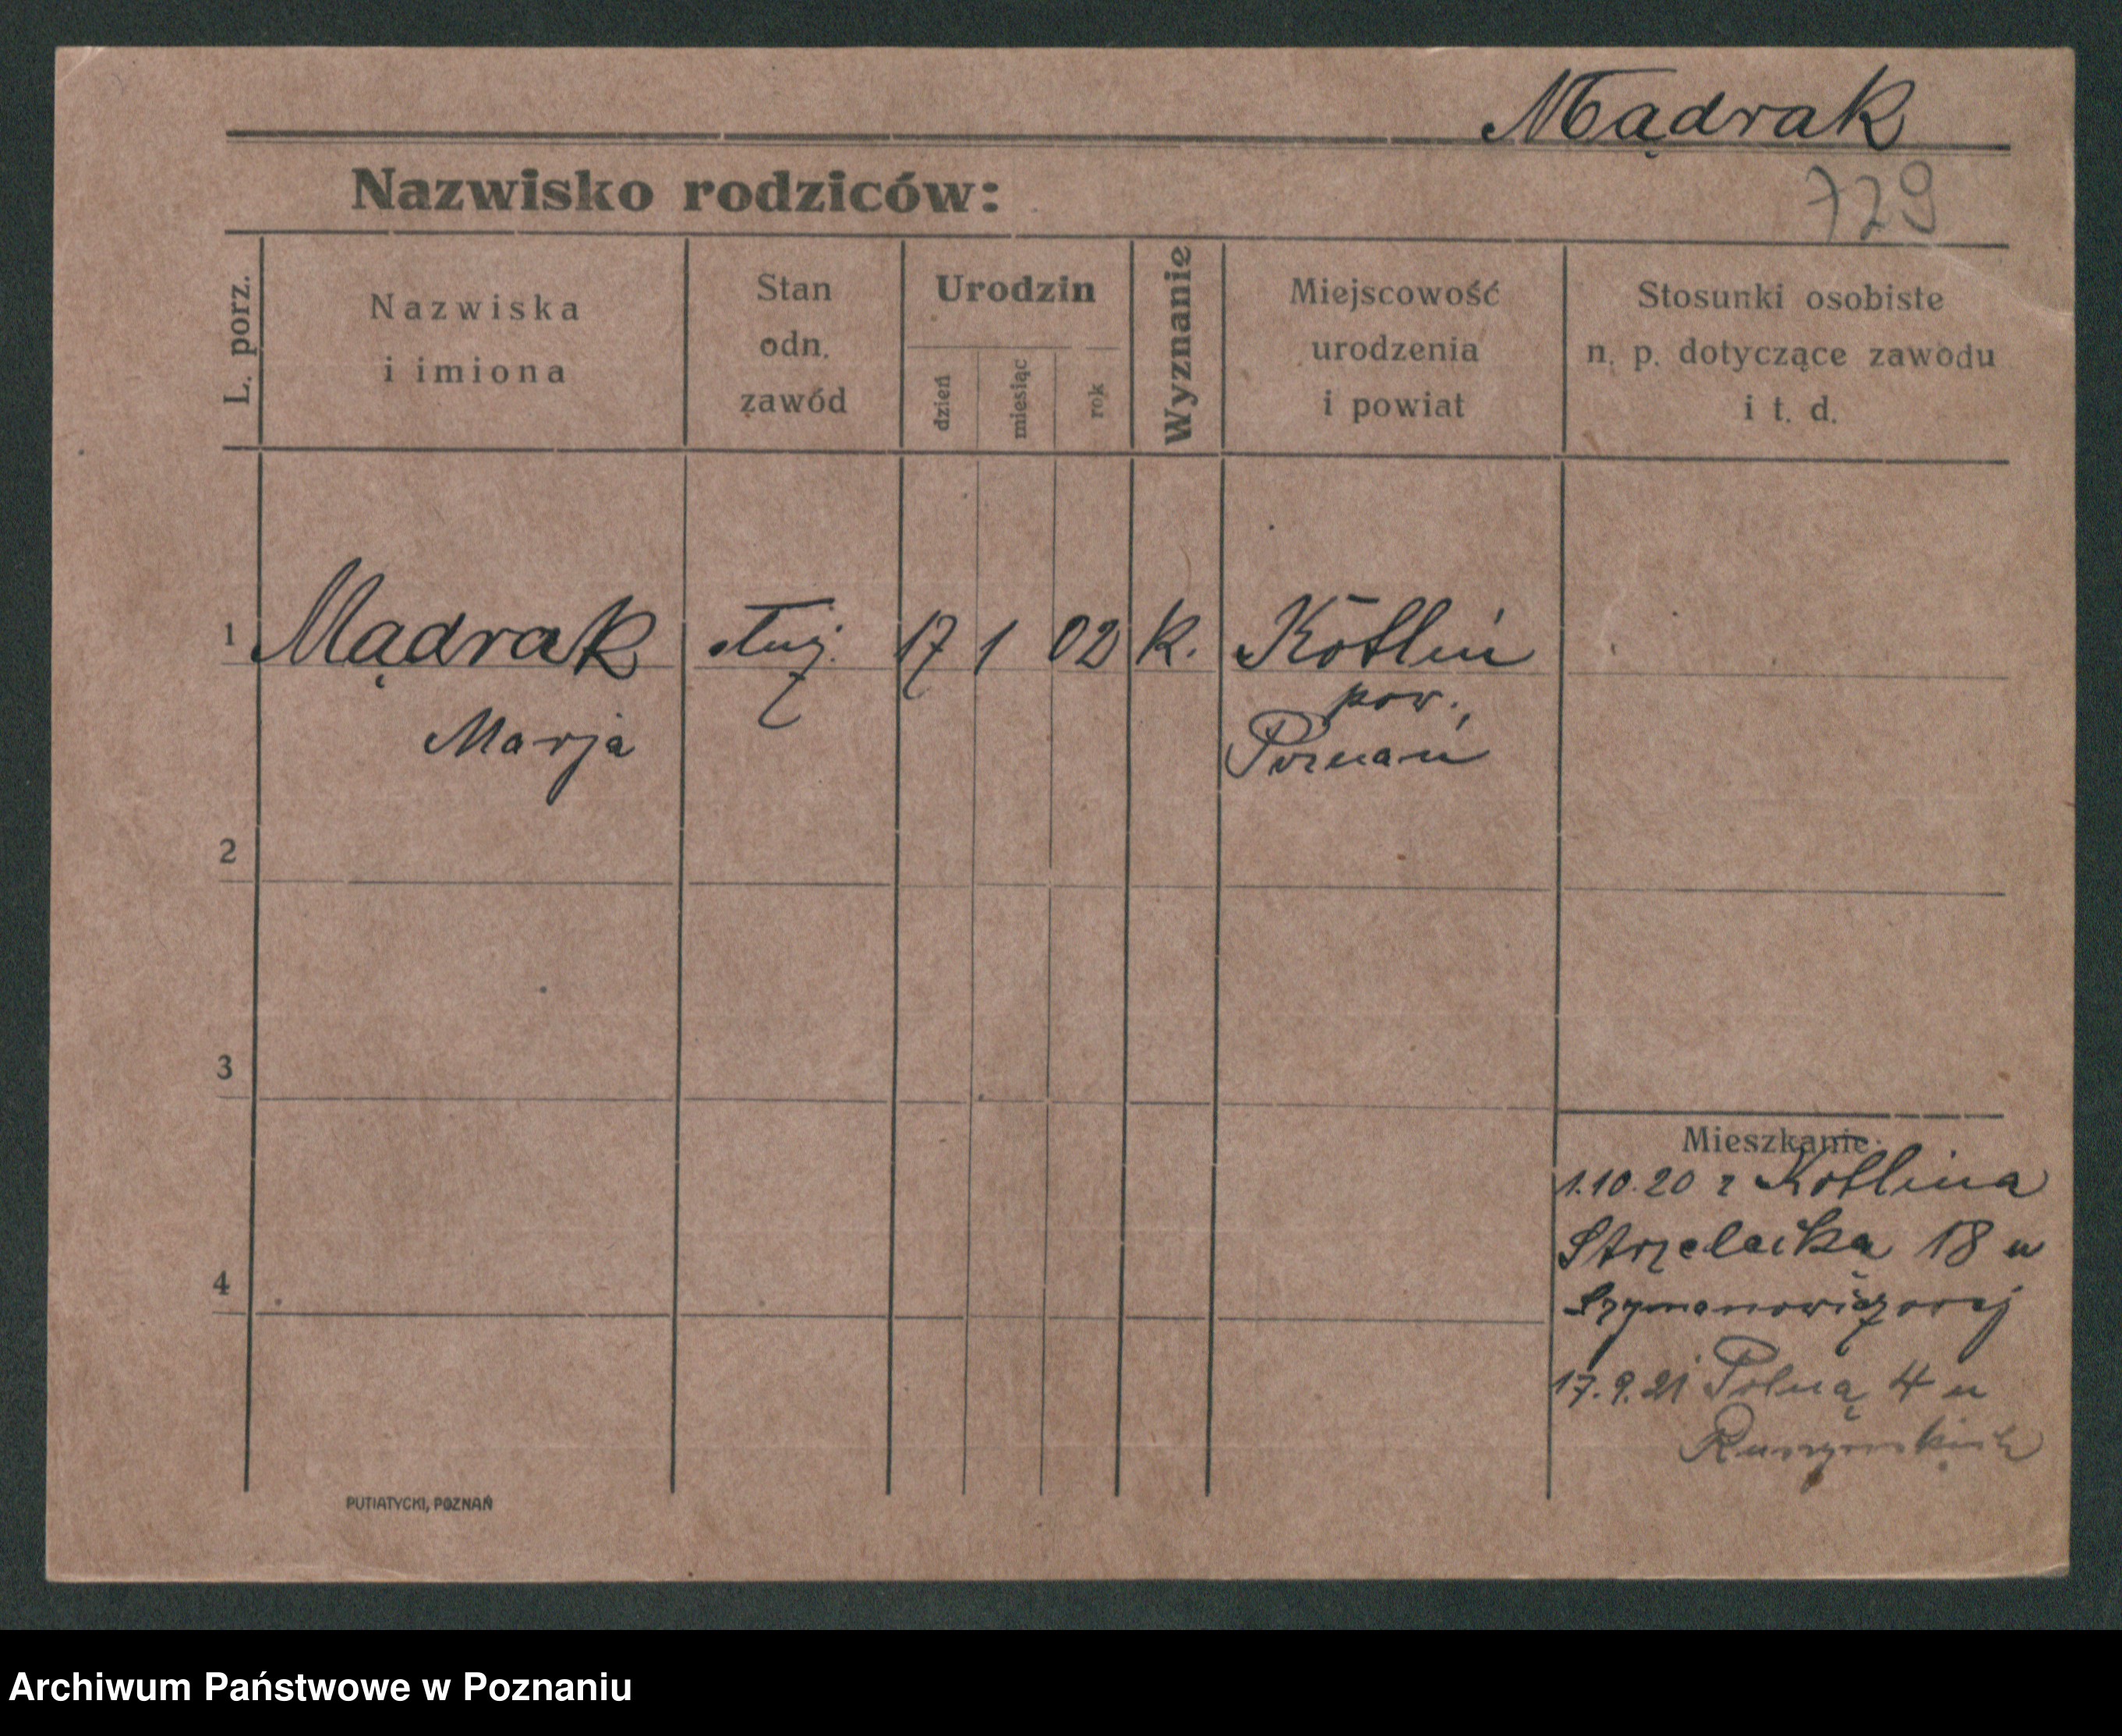 Mądrak
729
Nazwisko rodziców:
L. porz.
Nazwiska
i imiona
Stan
odn.
zawód
Urodzin
dzień
miesiąc
rok
Wyznanie
Miejscowość
urodzenia
i powiat
Stosunki osobiste
n. p. dotyczące zawodu
i t. d.
1 Mądrak służ. 17 1 02 k. Kotlin
pow.
Marja Poznań
2
3
4
Mieszkanie.
1.10.20 z Kotlina
Strzelecka 18 u
Szymanowiczowej
17.9.21 Polną 4 u
PUTIATYCKI, POZNAŃ
Archiwum Państwowe w Poznaniu